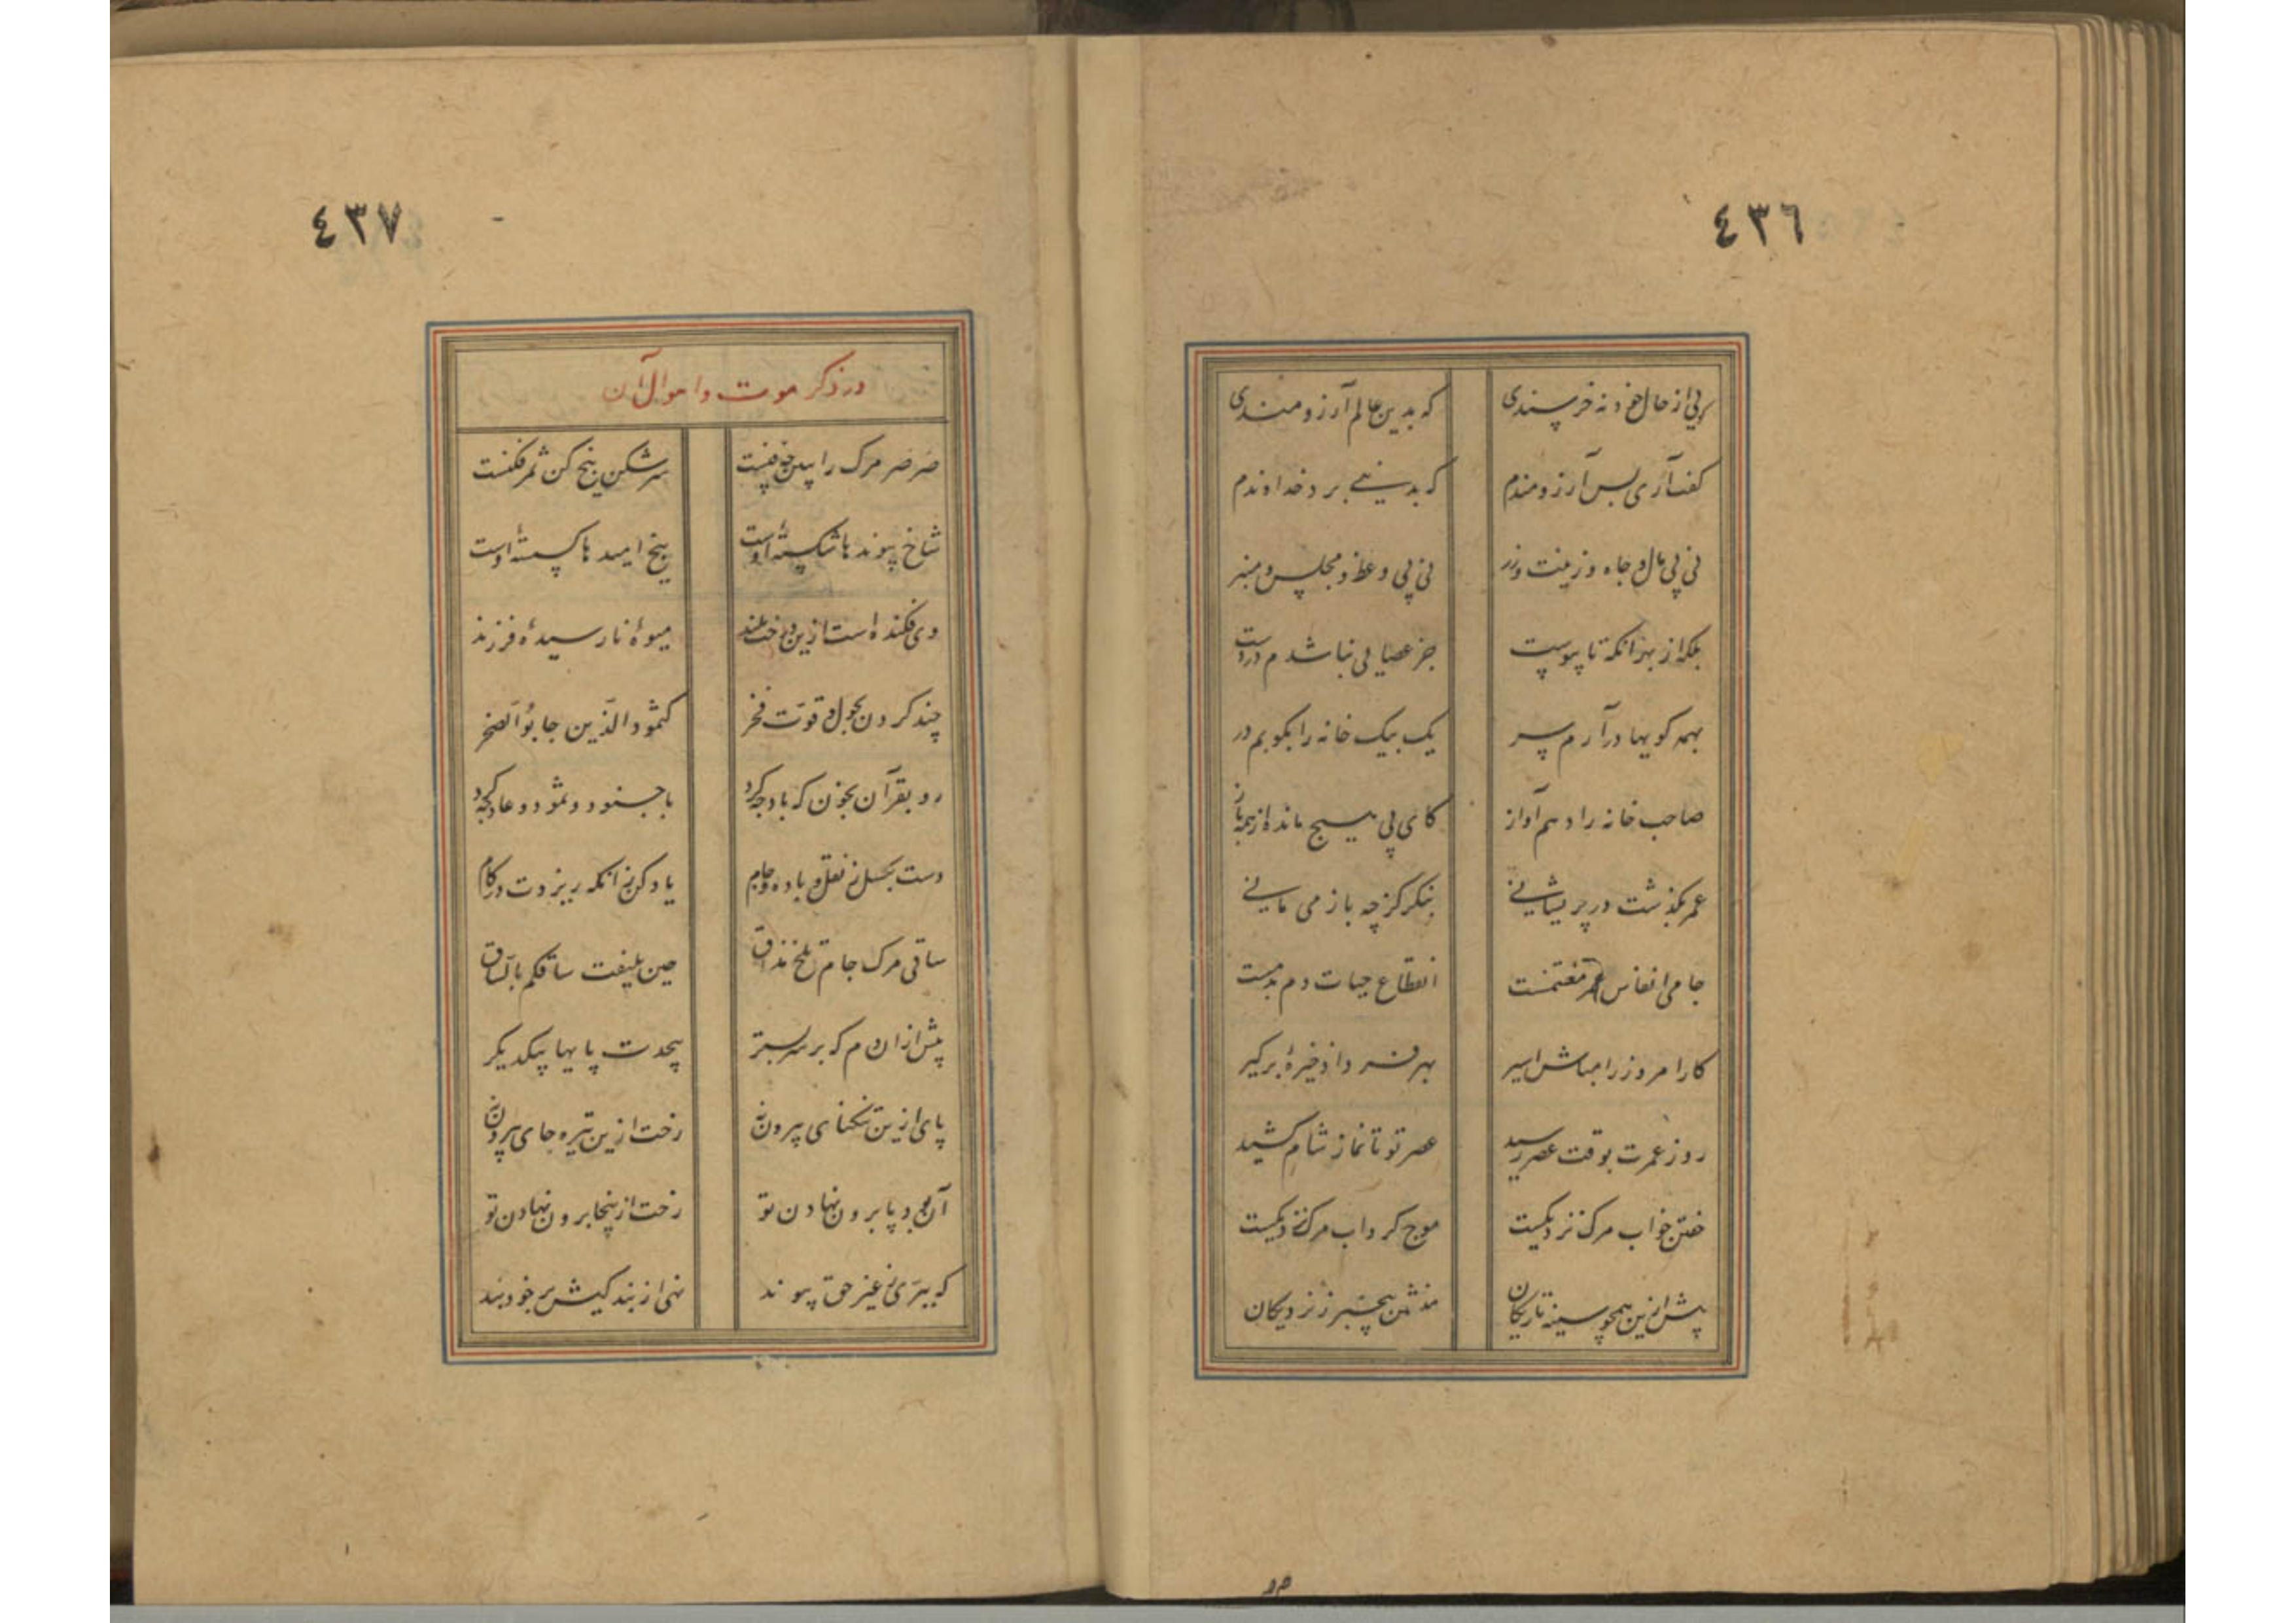 ٤٣٦
که بدین عالم آرزومندی
گفت آری بس آرزومندم که بدینی برد خداوندم
نی پی مال و جاه و زینت و زر نی پی وعظ و مجلس و منبر
بلکه از بهر آنکه تا پیوست جز عصایی نباشدم در دست
بهمه کویها درآرم سر یک بیک خانه را بکوبم در
صاحب خانه را دهم آواز کای پی هیچ مانده از همه باز
عمر بگذشت در پریشانی بنکر کز چه باز می مانی
جامی انفاس عمر مغتنمست انقطاع حیات دم بدمست
کار امروز را مباش اسیر بهر فردا ذخیرهٔ برگیر
روز عمرت بوقت عصر رسید عصر تو تا نماز شام کشید
خفتن خواب مرگ نزدیکست موج گرداب مرگ نزدیکست
پیش ازین همچو سینه تاریکان منشین بیخبر ز نزدیکان
٤٣٧
در ذکر موت و احوال آن
صرصر مرگ را سرشکن بیخ کن ثمر فکنست
شاخ پیوندها شکستهٔ اوست بیخ امیدها گسستهٔ اوست
وی فکنده است ازین درخت بلند میوهٔ نارسیدهٔ فرزند
چند کردن بحول و قوت فخر کثمود الذین جابوا الصخر
رو بقرآن بخوان که باد چه کرد با جنود و ثمود و عاد چه کرد
دست بگسل ز نقل و باده و جام یاد کن زانکه ریزدت در کام
ساقی مرگ جام تلخ مذاق حین یلیفت ساقکم بالساق
پیش از آن دم که بر سر بستر پیچدت پایها بیکدیگر
پای ازین تنگنای بیرون نه رخت ازین تیره جای بیرون نه
آن بود پا برون نهادن تو رخت ازینجا برون نهادن تو
که ببری ز غیر حق پیوند نهی از بندگیش بر خود بند